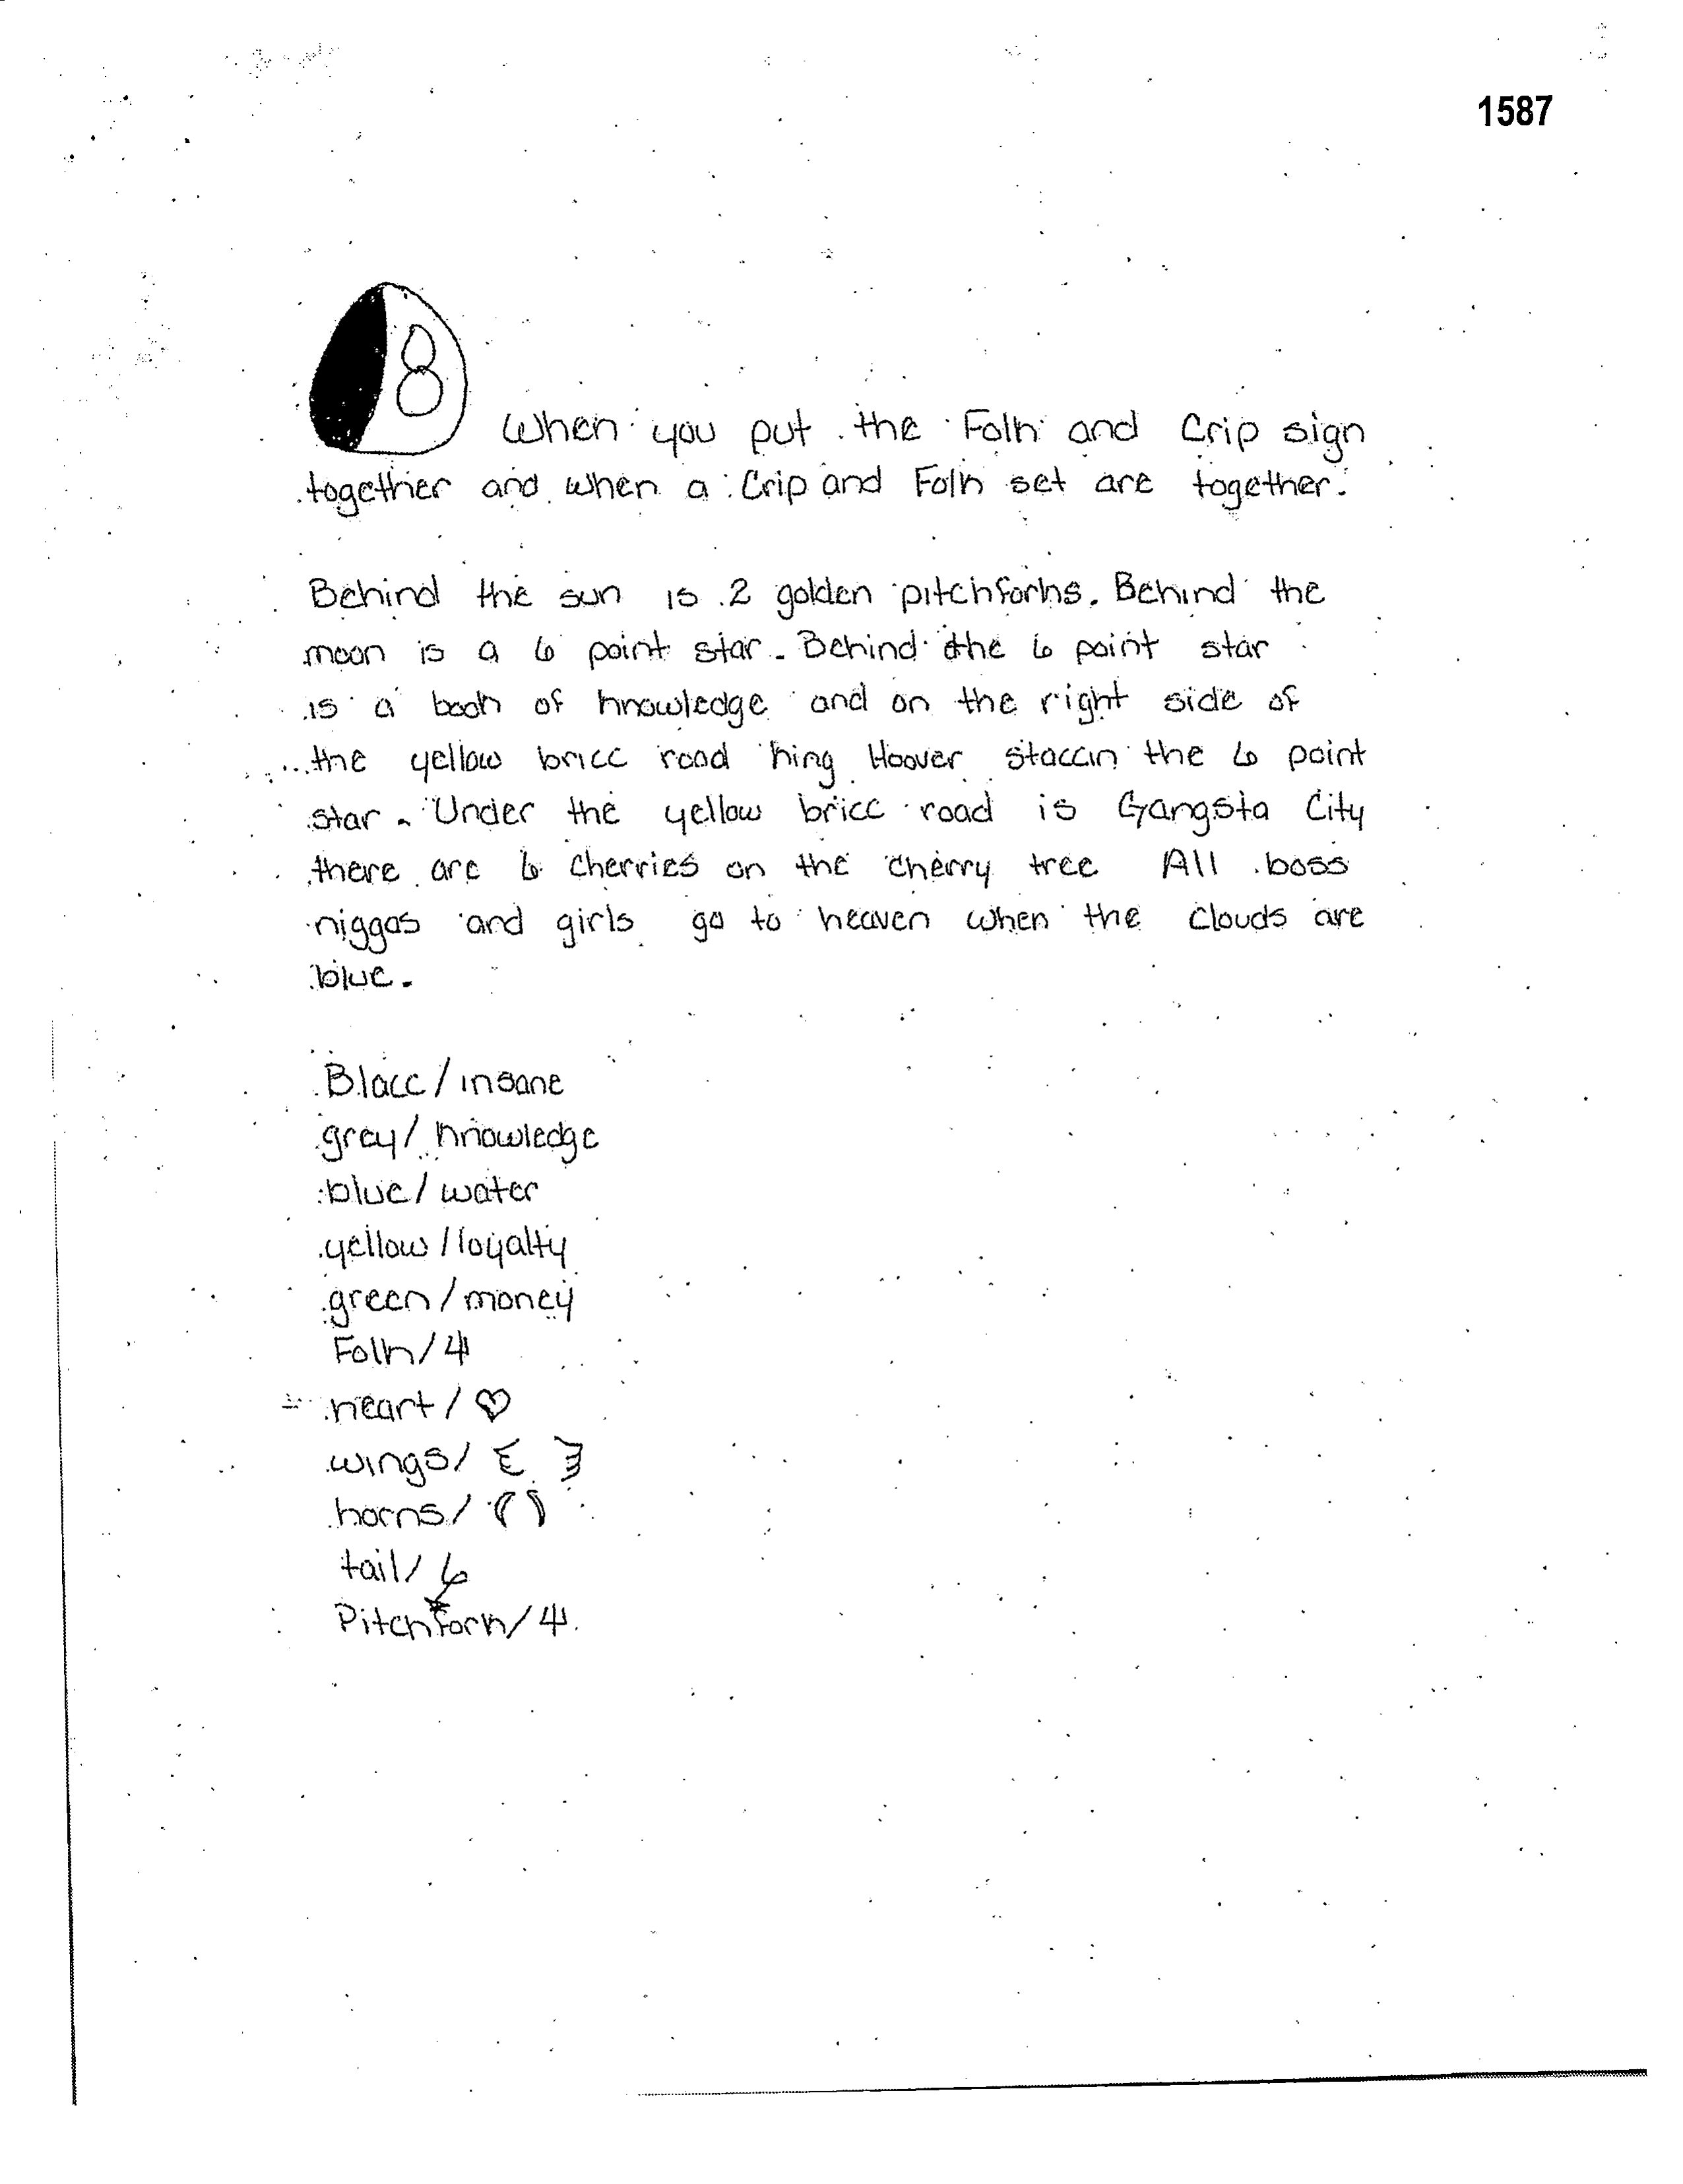 1587
8
When you put the Folk and Crip sign
together and when a Crip and Folk set are together.
Behind the sun is 2 golden pitchforks. Behind the
moon is a 6 point star. Behind the 6 point star
is a book of knowledge and on the right side of
the yellow bricc road king Hoover staccin the 6 point
star. Under the yellow bricc road is Gangsta City
there are 6 cherries on the cherry tree All boss
niggas and girls go to heaven when the clouds are
blue.
Blacc/insane
grey/knowledge
blue/water
yellow/loyalty
green/money
Folk/
heart/♡
wings/
horns/
tail/
Pitchfork/